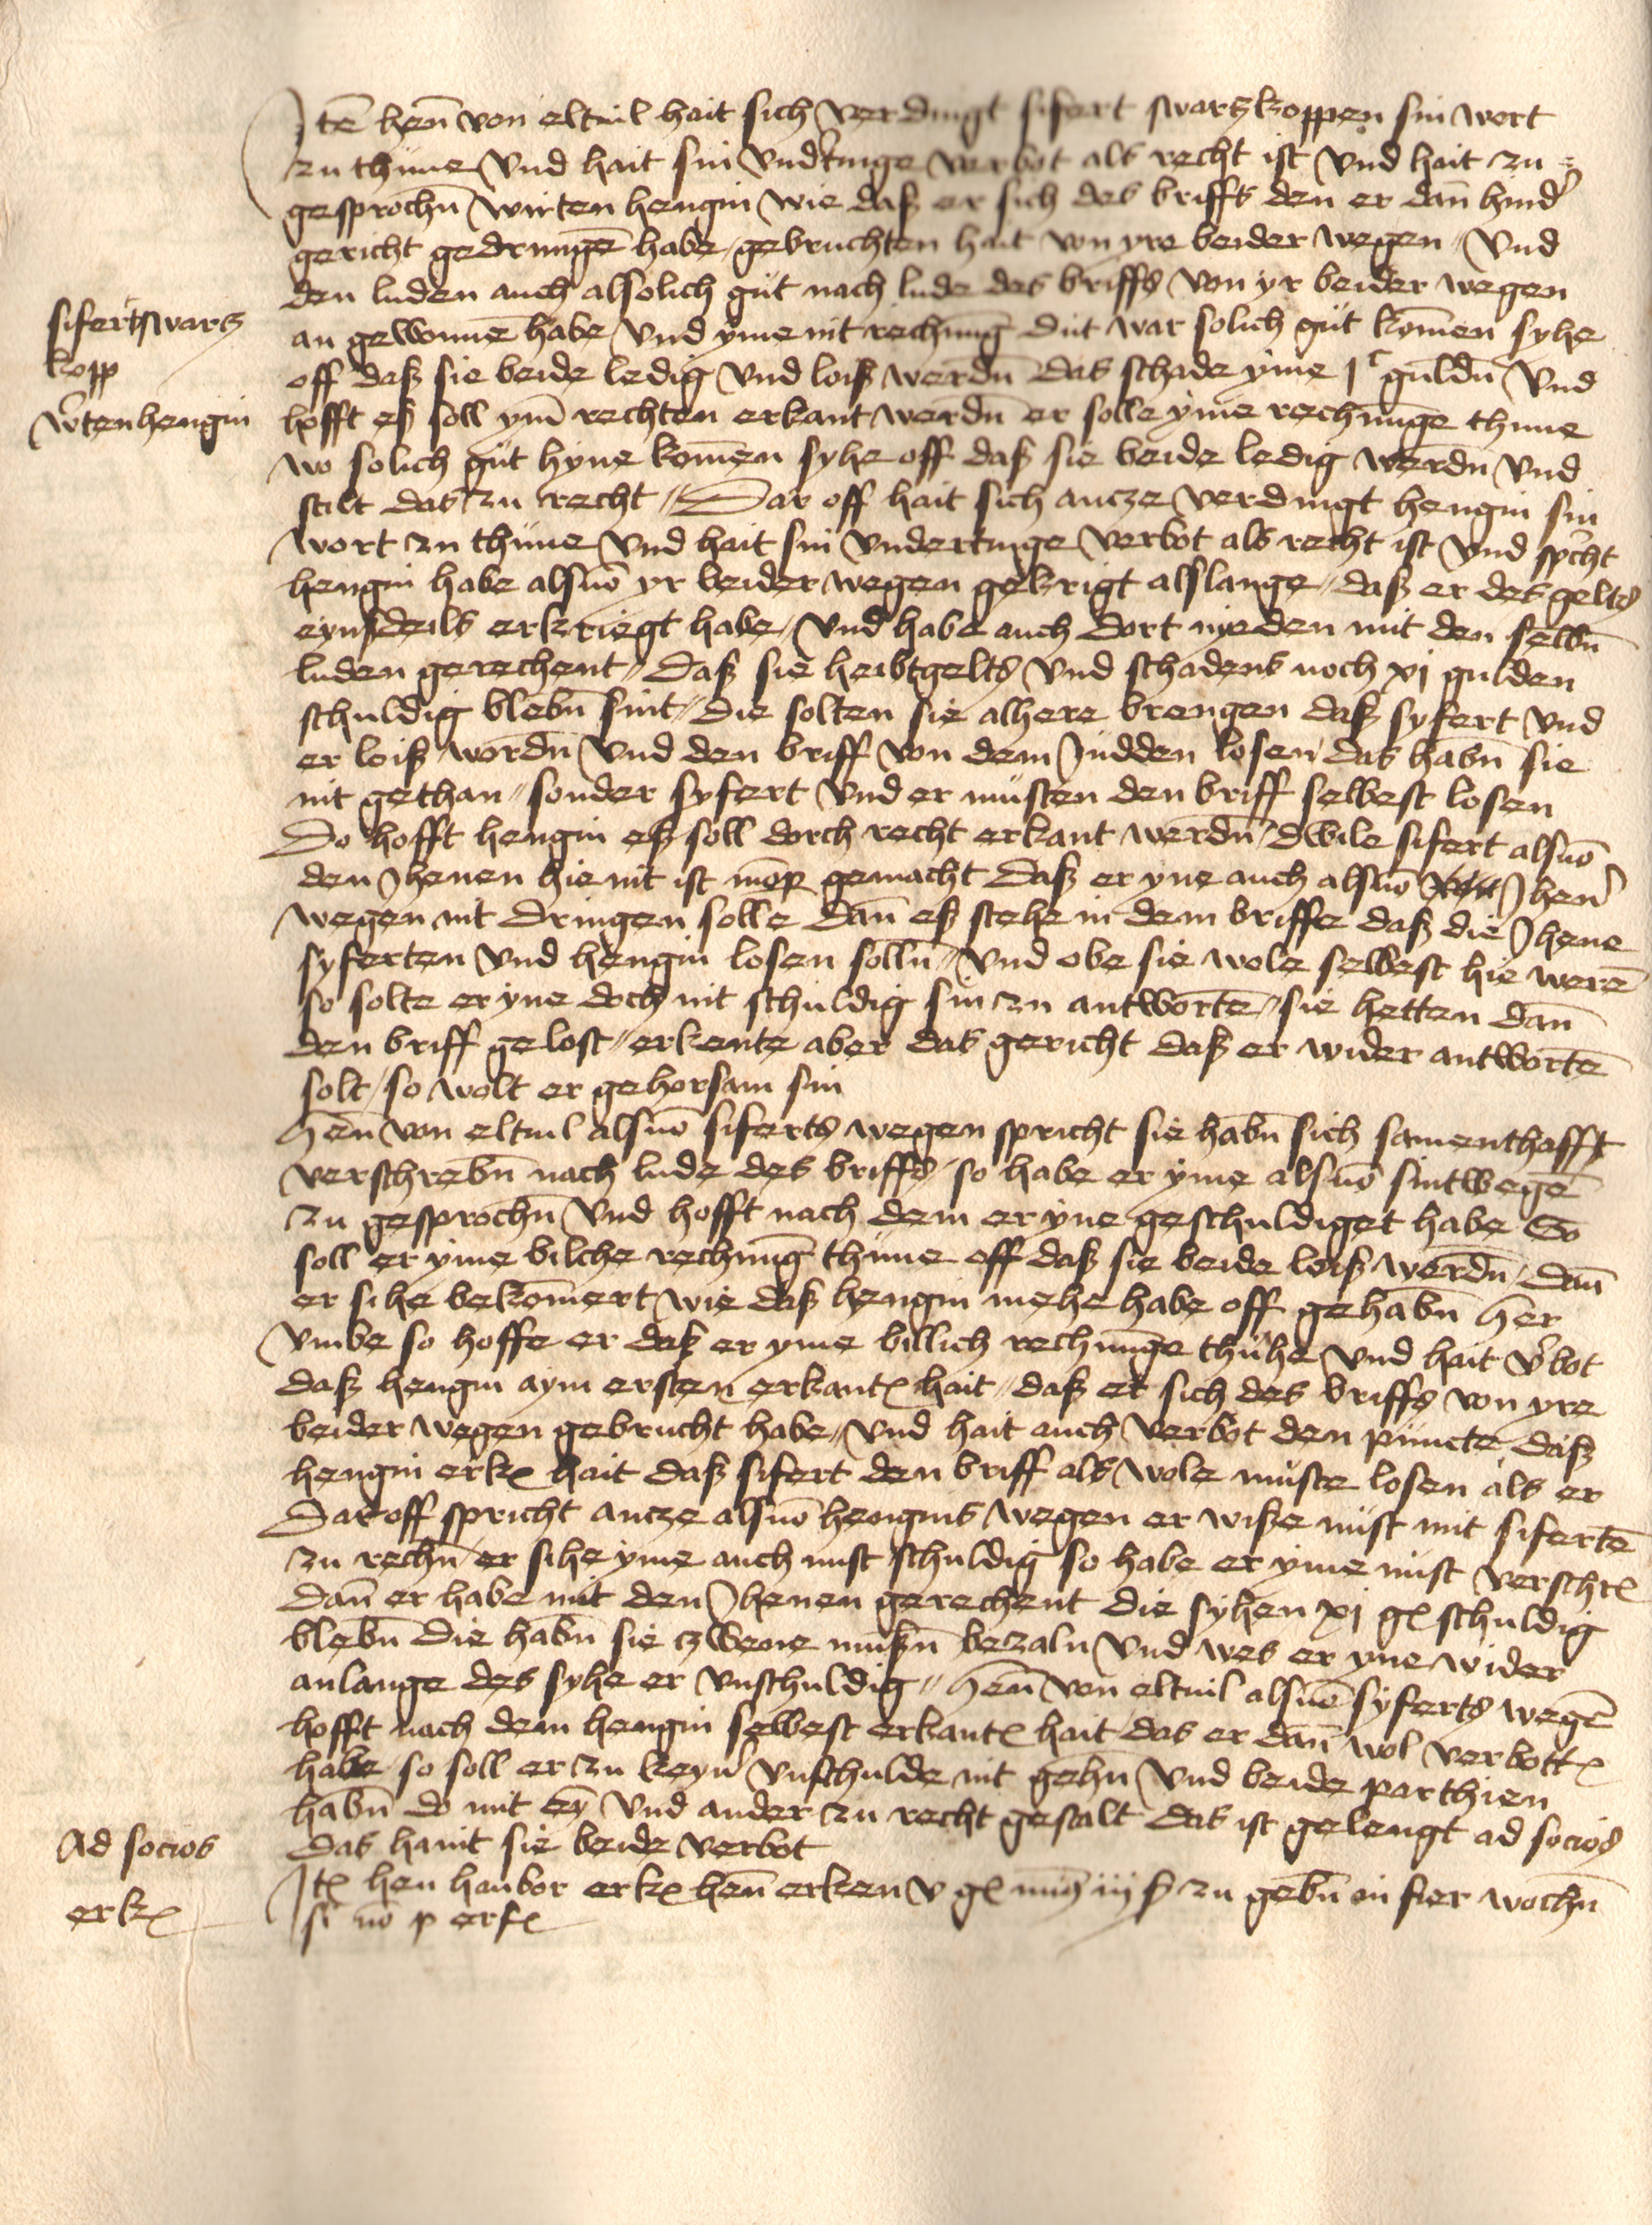 Itē hen̄ von eltuil hait sich verdingt sifert swartzkoppen sin wort
zu thune vnd hait sin vnd̕tinge verbot als recht ist vnd hait zu
gesprochn̄ wirten hengin wie daß er sich des briffs den er dan̄ hind̕
gericht gedrungē habe gebruchten hait von yre beider wegen vnd
den luden auch alsolich gut nach lude des briffs von yr beider wegen
an gewonnē habe vnd yme nit rechnūg dut war solich gut kom̄en syhe
sifert swartz
kopp
w̕tenhengin
off daß sie beide ledig vnd loiß werdn̄ das schade yme jc guldn̄ vnd
hofft eß soll ym̄ rechten erkant werdn̄ er solle yme rechnūge thune
wo solich gut hyne kom̄en syhe off daß sie beide ledig werdn̄ vnd
stilt das zu recht Dar off hait sich ancze verdingt hengin sin
wort zu thune vnd hait sin vndertinge verbot als recht ist vnd sp̕cht
hengin habe alsuō yr beider wegen gekrigt alslange daß er des gelts
eynßdeils erkriegt habe vnd habe auch dort nyeden mit den selbn̄
luden gerechent daß sie heibtgelts vnd schadens noch xj gulden
schuldig blebn̄ sint die solten sie alhere brengen daß syfert vnd
er loiß wordn̄ vnd den briff von dem Judden losen das habn̄ sie
nit gethan sonder syfert vnd er musten den briff selbest losen
Do hofft hengin eß soll dorch recht erkant werdn̄ dwile sifert alsuō
den Jhenen hie nit ist mōp gemacht daß er yne auch alsuō Jhen̕
wegen nit dringen solle dan̄ eß stehe in dem briffe daß die Jhene
syferten vnd hengin losen solln̄ vnd obe sie wole selbest hie werē
so solte er yne doch nit schuldig sin zu antwortē sie hetten dan̄
den briff gelost erkente aber das gericht daß er wider antwortē
solt so wolt er gehorsam sin
Hen̄ von eltuil alsuō siferts wegen spricht sie habn̄ sich samenthafft
verschrebn̄ nach lude des briffs so habe er yme alsuō sintwegē
zu gesprochn̄ vnd hofft nach dem er yne geschuldiget habe So
soll er yme bilche rechnūg thune off daß sie beide loiß werdn̄ dan̄
er sihe bekom̄ert wie daß hengin mehe habe off gehabn̄ Her
vmbe so hoffe er daß er yme billich rechnūge thuhe vnd hait v̕bot
daß hengin aym ersten erkant hait daß er sich des briffs von yre
beider wegen gebrucht habe vnd hait auch verbot den puncte daß
hengin erk hait daß sifert den briff als wole muste losen als er
Dar off spricht ancze alsuō hengins wegen er wiße nust mit sifertē
zu rechn̄ er sihe yme auch nust schuldig so habe er yme nust verschr
dan̄ er habe mit den Jhenen gerechent die syhen xj gl schuldig
blebn̄ die habn̄ sie czwene mußn̄ bezaln vnd wes er yne wider
anlange des syhe er vnschuldig Hen̄ von eltuil alsuō syferts wegē
hofft nach dem hengin selbest erkant hait das er dan̄ wol verbott
habe so soll er zu keyn̕ vnschulde nit gehn̄ vnd beide parthien
habn̄ do mit eȳ vnd ander zu recht gestalt das ist gelengt ad socios
Ad socios
das hant sie beide verbot
erk
It hen hanbor erk hen̄ erken v gl min̕ iij ß zu gebn̄ in fier wochn̄
si nō p erf